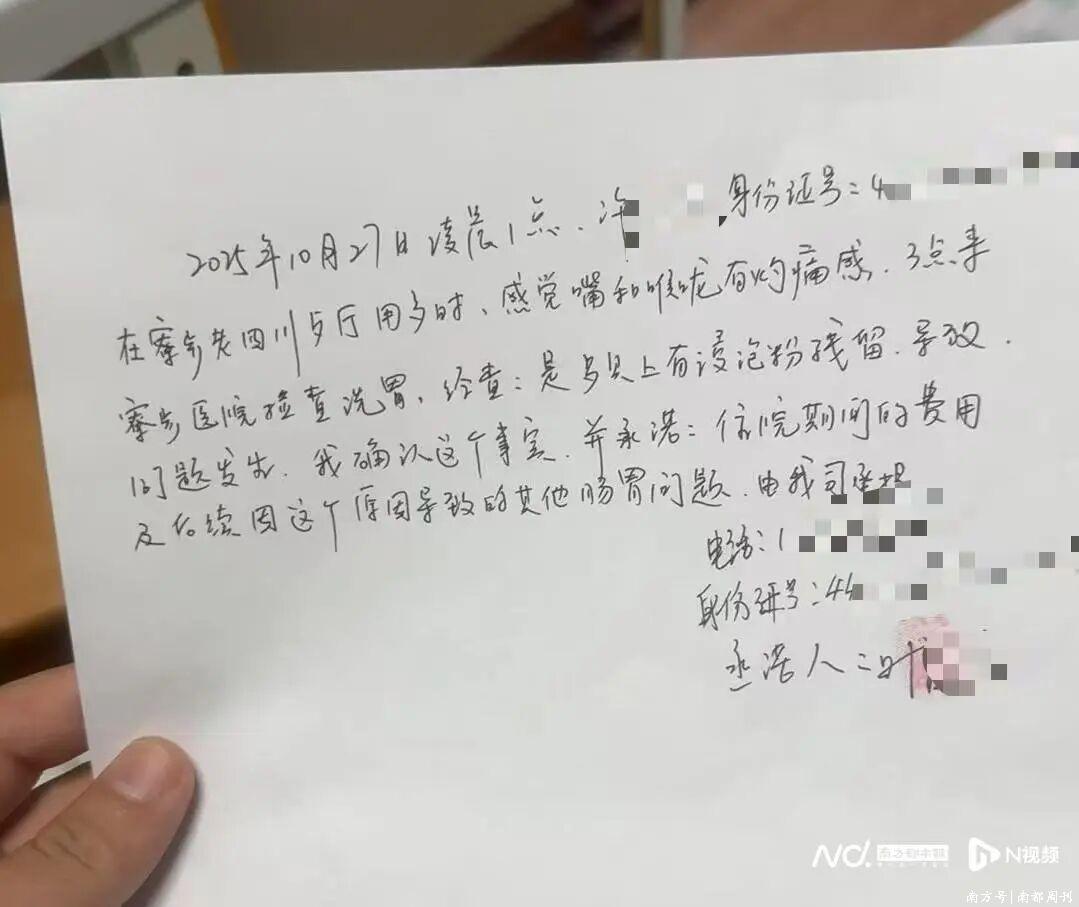 2025年10月27日凌晨1点、许
身份证号:4
在寮步老四川歺厅用歺时、感觉嘴和喉咙有灼痛感.3点来
寮步医院检查洗胃、经查:是歺具上有浸泡粉残留.导致.
问题发生.我确认这个事实.并承诺:住院期间的费用
及后续因这个原因导致的其他肠胃问题.由我司承担
电话:1
身份证号:44
承诺人:叶
N视频
南方号|南都周刊